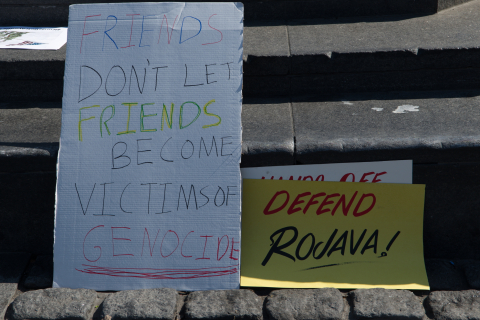 FRIENDS
DON'T LET
FRIENDS
BECOME
VICTIMS OF
GENOCIDE
HANDS OFF
DEFEND
ROJAVA!